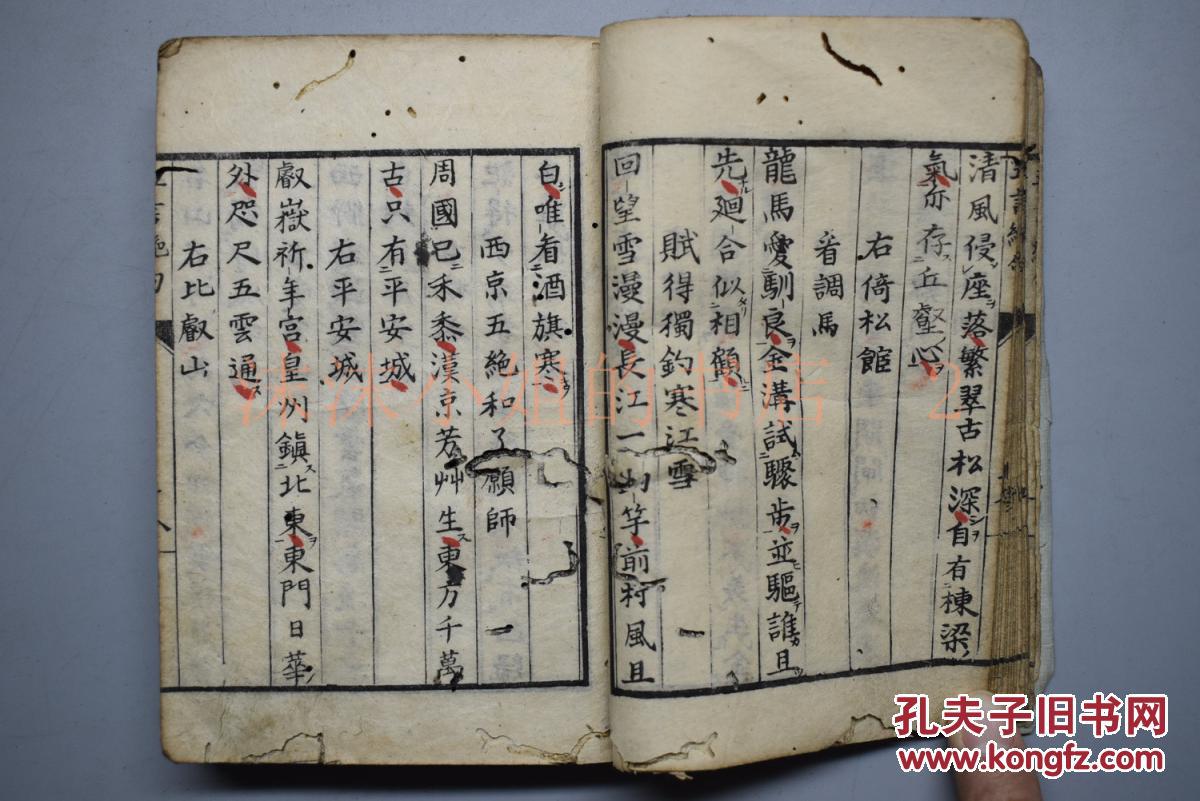 清風侵座落繁翠古松深自有棟梁
氣亦存丘壑心
右倚松館
看調馬
龍馬愛馴良金溝試驟步並驅誰且
先廻合似相顧
賦得獨釣寒江雪 一
回望雪漫漫長江一釣竿前村風且
白唯看酒旗寒
西京五絶和了願師 一
周國已禾黍漢京芳艸生東方千萬
古只有平安城
右平安城
叡嶽祈年宮皇州鎮北東東門日華
外咫尺五雲通
右比叡山
沫沫小姐的书店 2
孔夫子旧书网
www.kongfz.com